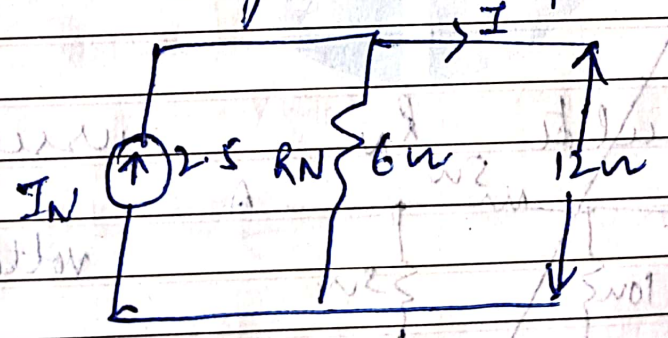 I
IN 2.5 RN 6Ω 12Ω